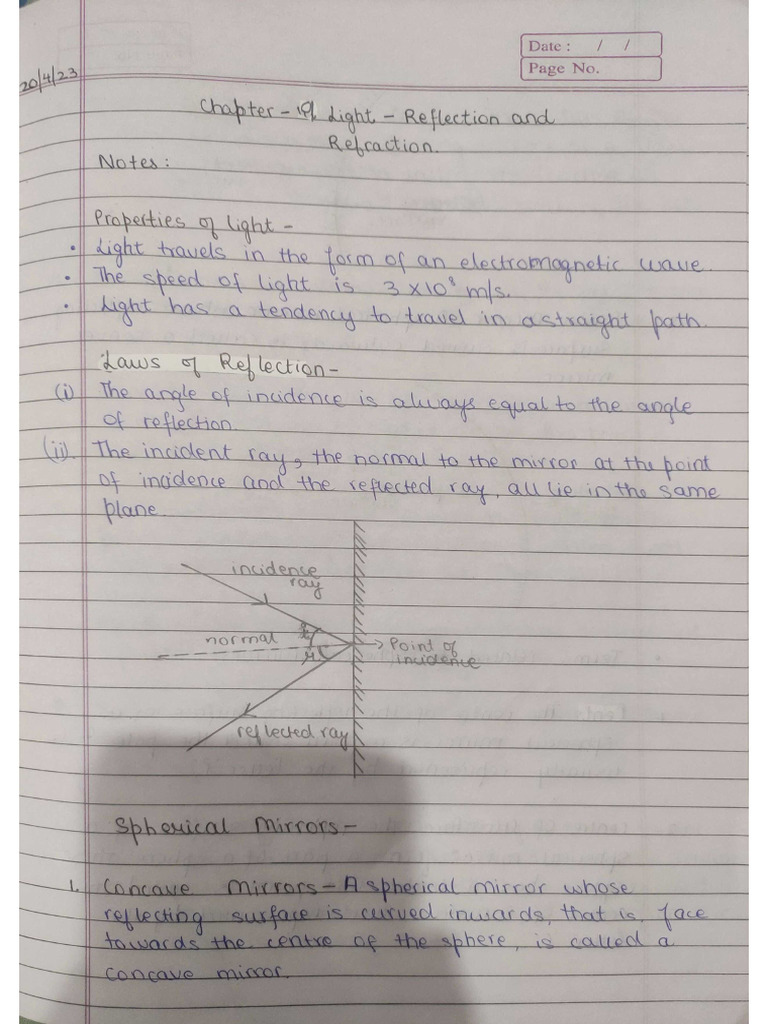 Date : / /
Page No.
20/4/23
Chapter - 9 Light - Reflection and
Refraction.
Notes :
Properties of light -
• Light travels in the form of an electromagnetic wave.
• The speed of light is 3 x 10⁸ m/s.
• Light has a tendency to travel in a straight path.
Laws of Reflection -
(i) The angle of incidence is always equal to the angle
of reflection.
(ii). The incident ray, the normal to the mirror at the point
of incidence and the reflected ray, all lie in the same
plane.
incidence
ray
normal
i
r
Point of
incidence
reflected ray
Spherical Mirrors -
1. Concave Mirrors - A spherical mirror whose
reflecting surface is curved inwards, that is, face
towards the centre of the sphere, is called a
concave mirror.